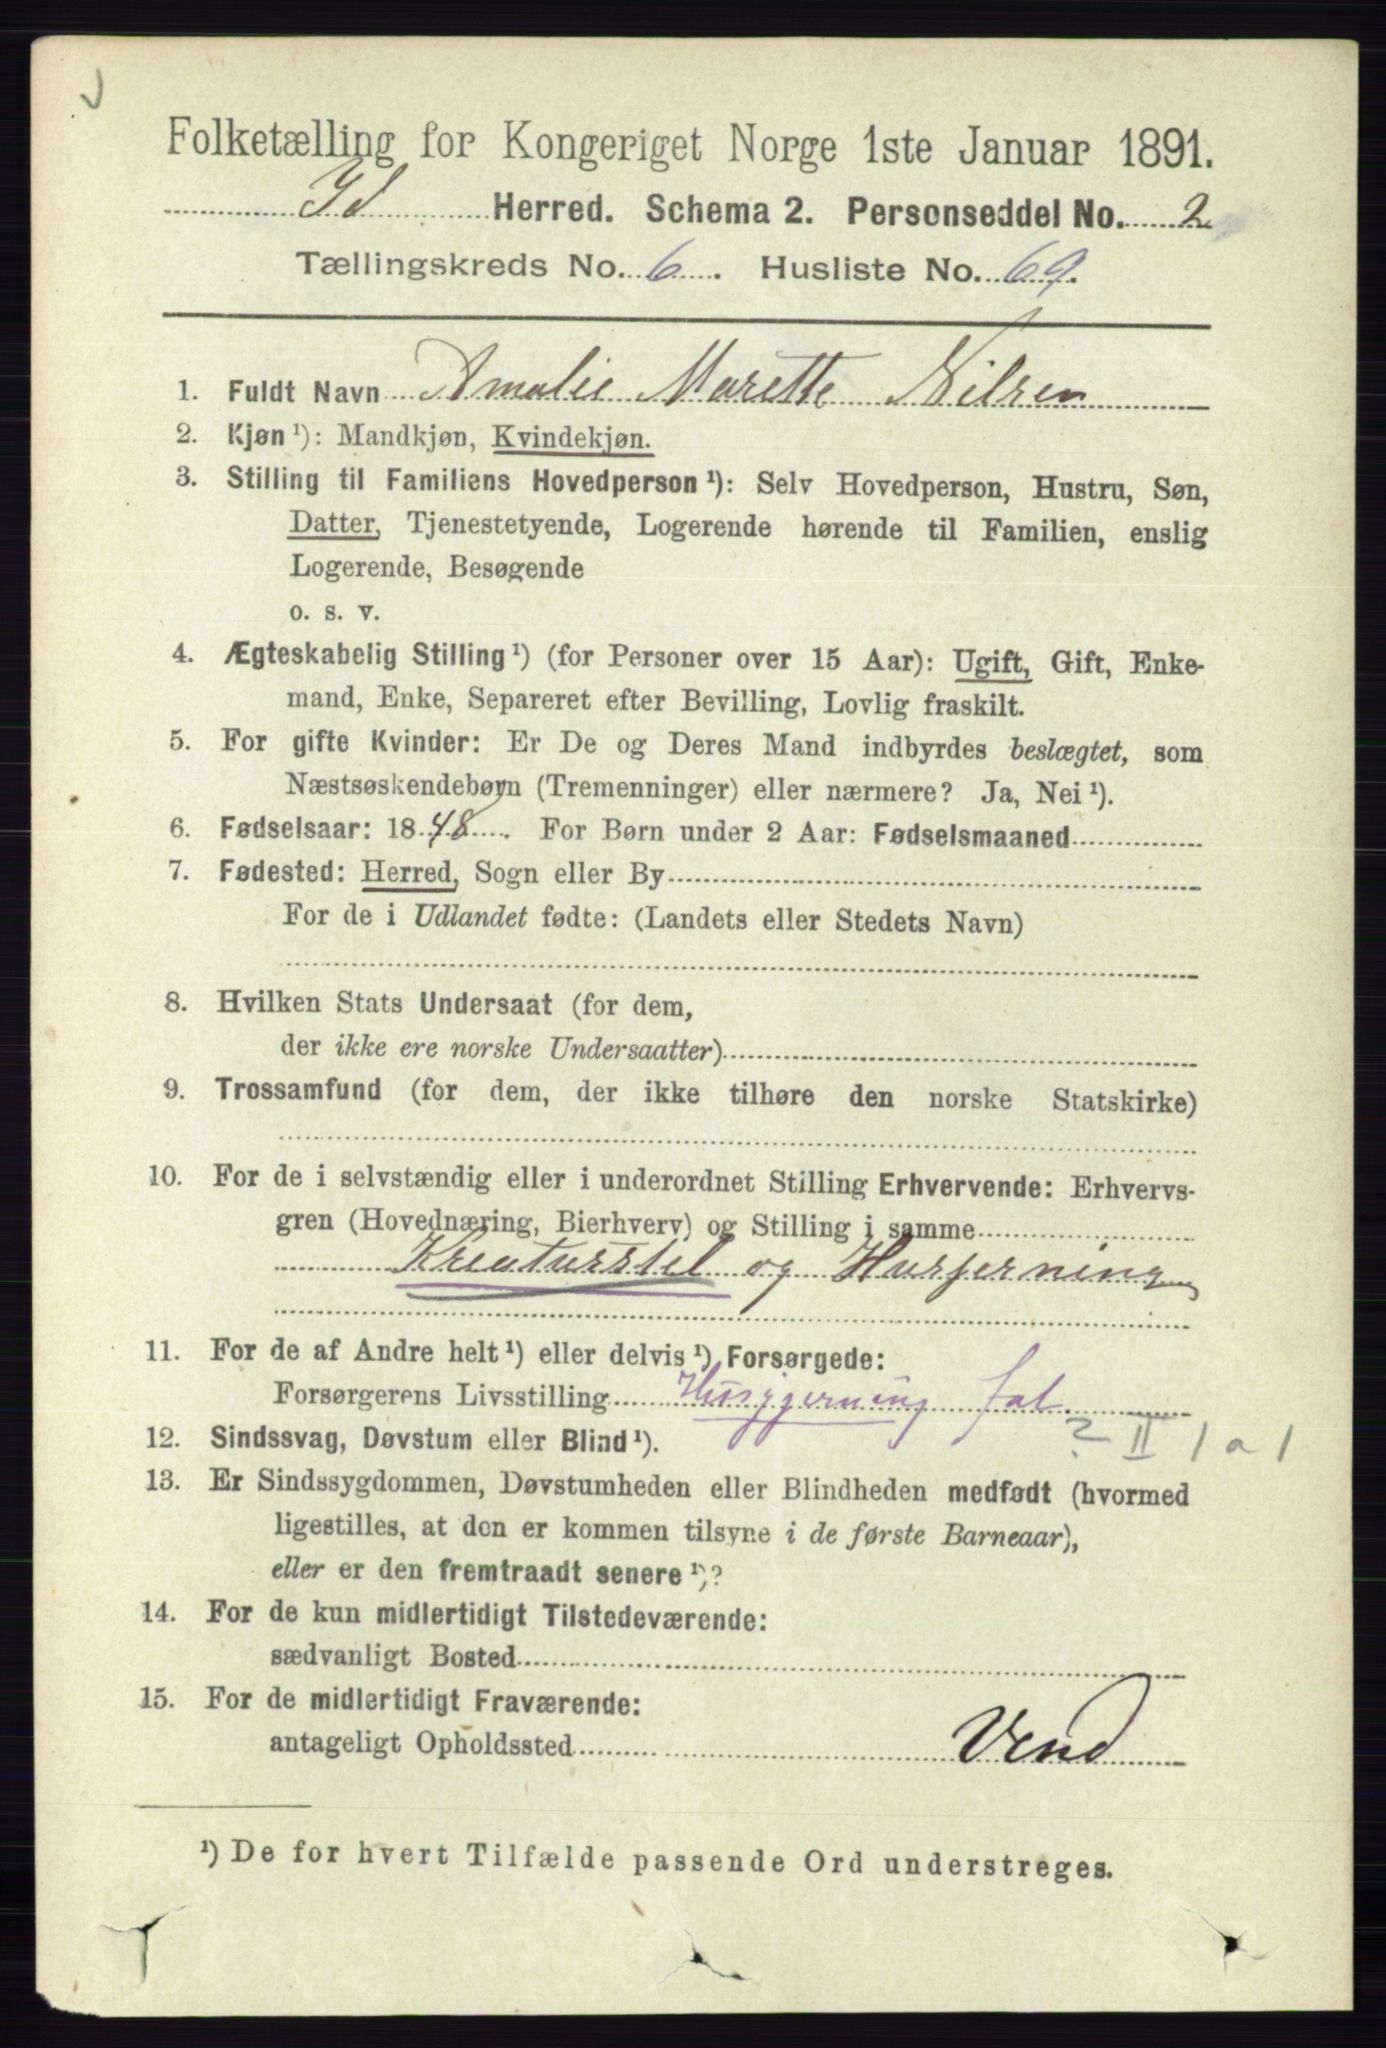 Folketælling for Kongeriget Norge 1ste Januar 1891.
Id Herred. Schema 2. Personseddel No. 2
Tællingskreds No. 6. Husliste No. 69.
1. Fuldt Navn Amalie Marette Nilsen
2. Kjøn ¹): Mandkjøn, Kvindekjøn.
3. Stilling til Familiens Hovedperson ¹): Selv Hovedperson, Hustru, Søn,
Datter, Tjenestetyende, Logerende hørende til Familien, enslig
Logerende, Besøgende
o. s. v.
4. Ægteskabelig Stilling ¹) (for Personer over 15 Aar): Ugift, Gift, Enke-
mand, Enke, Separeret efter Bevilling, Lovlig fraskilt.
5. For gifte Kvinder: Er De og Deres Mand indbyrdes beslægtet, som
Næstsøskendebørn (Tremenninger) eller nærmere? Ja, Nei ¹).
6. Fødselsaar: 1848. For Børn under 2 Aar: Fødselsmaaned
7. Fødested: Herred, Sogn eller By
For de i Udlandet fødte: (Landets eller Stedets Navn)
8. Hvilken Stats Undersaat (for dem,
der ikke ere norske Undersaatter)
9. Trossamfund (for dem, der ikke tilhøre den norske Statskirke)
10. For de i selvstændig eller i underordnet Stilling Erhvervende: Erhvervs-
gren (Hovednæring, Bierhverv) og Stilling i samme
Kreaturstel og Husjerning
11. For de af Andre helt ¹) eller delvis ¹) Forsørgede:
Forsørgerens Livsstilling Husgjerning
12. Sindssvag, Døvstum eller Blind ¹). ? II 1 a 1
13. Er Sindssygdommen, Døvstumheden eller Blindheden medfødt (hvormed
ligestilles, at den er kommen tilsyne i de første Barneaar),
eller er den fremtraadt senere ¹)?
14. For de kun midlertidigt Tilstedeværende:
sædvanligt Bosted
15. For de midlertidigt Fraværende:
antageligt Opholdssted Vend
¹) De for hvert Tilfælde passende Ord understreges.